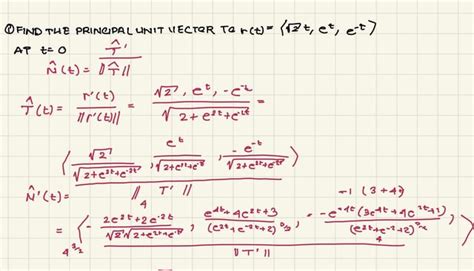 ① FIND THE PRINCIPAL UNIT VECTOR TO r(t) = ⟨√2 t, e^t, e^-t⟩
AT t=0
N̂(t) = T̂' / ||T̂||
T̂(t) = r'(t) / ||r'(t)|| = √2, e^t, -e^-t / √(2+e^2t+e^-2t) =
⟨ √2 / √(2+e^2t+e^-2t), e^t / √(2+e^2t+e^-2t), -e^-t / √(2+e^2t+e^-2t) ⟩
|| T' ||
N̂'(t) =
4
-1 (3+4)
= ⟨ - 2e^2t+2e^-2t / √2√(2+e^2t+e^-2t), e^4t+4e^2t+3 / (e^2t+e^-t+2)^3/2, -e^-4t(3e^4t+4e^2t+1) / (e^2t+e^-t+2)^3/2 ⟩
4^3/2
4
|| T' ||